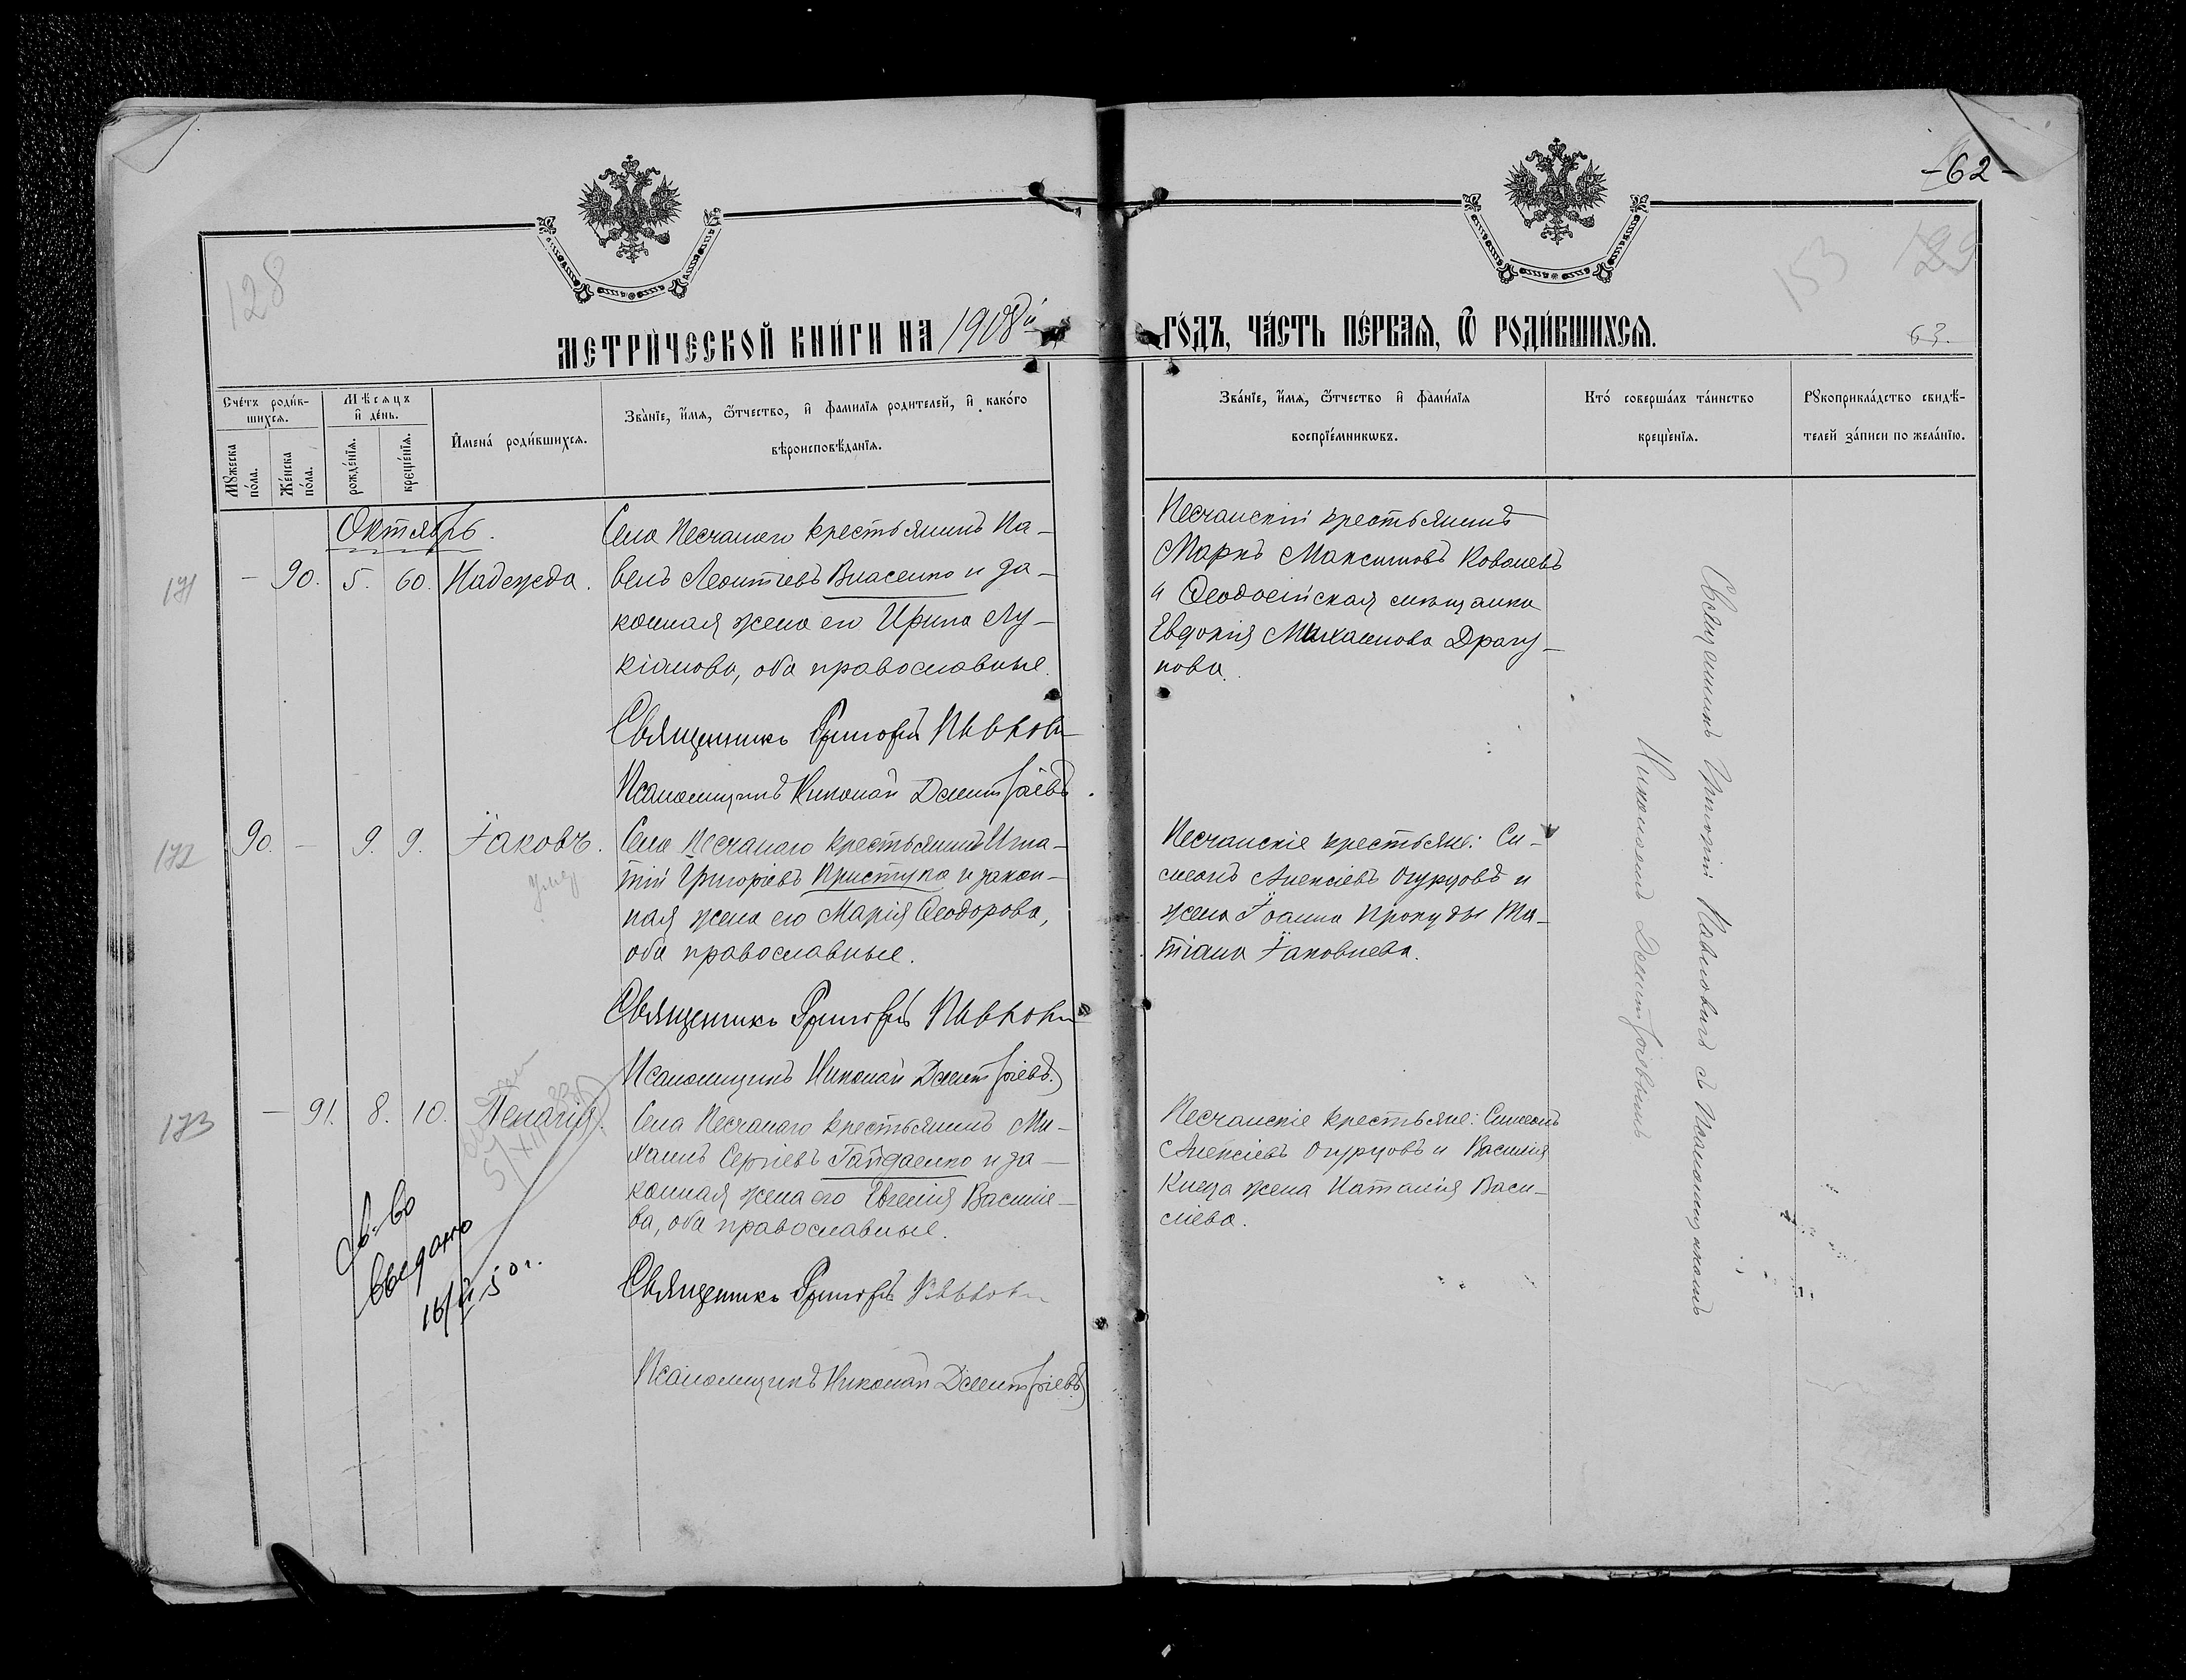 -62-
128
153
129
МЕТРИ́ЧЕСКОЙ КНИ́ГИ НА 1908й ГО́ДЪ, ЧА́СТЬ ПЕ́РВАѦ, Ѿ РОДИ́ВШИХСѦ.
63.
Сче́тъ роди́в-
шихсѧ.
Мꙋ́жеска по́ла.
Же́нска по́ла.
Мѣ́сѧцъ
и҆ де́нь.
рожде́нїѧ.
креще́нїѧ.
И҆мена̀ роди́вшихсѧ.
Зва́нїе, и҆́мѧ, ѻ҆́тчество, и҆ фами́лїѧ роди́телей, и҆ како́го
вѣроисповѣ́данїѧ.
Зва́нїе, и҆́мѧ, ѻ҆́тчество и҆ фами́лїѧ
воспрїе́мникѡвъ.
Кто̀ соверша́лъ та́инство
креще́нїѧ.
Рꙋкоприкла́дство свидѣ́-
телей за́писи по жела́нїю.
Октябрь.
171
- 90. 5. 60. Надежда.
Села Песчанаго крестьянинъ Па-
велъ Леонтіевъ Власенко и за-
конная жена его Ирина Лу-
кіанова, оба православные.
Священникъ Григорій Павлов
Псаломщикъ Николай Димитріевъ.
Песчанскій крестьянинъ
Маркъ Максимовъ Ковалевъ
и Ѳеодосійская мѣщанка
Евдокія Михаилова Драгу-
нова.
Священникъ Григорій Павловичъ съ Псаломщикомъ
Николаемъ Димитріевымъ
172
90. - 9. 9. Іаковъ.
Села Песчанаго крестьянинъ Игна-
тій Григоріевъ Приступа и закон-
ная жена его Марія Ѳеодорова,
оба православные.
Священникъ Григорій Павлов
Псаломщикъ Николай Димитріевъ.
Песчанскіе крестьяне: Си-
меонъ Алексіевъ Огурцовъ и
жена Іоанна Прокуды Та-
тіана Іаковлева.
173
- 91. 8. 10. Пелагія.
Села Песчанаго крестьянинъ Ми-
хаилъ Сергіевъ Гайдаенко и за-
конная жена его Евгенія Василіе-
ва, оба православные.
Священникъ Григорій Павлов
Псаломщикъ Николай Димитріевъ
Песчанскіе крестьяне: Симеонъ
Алексіевъ Огурцовъ и Василія
Кнеза жена Наталія Васи-
ліева.
Св-во
выдано
16/II 50 г.